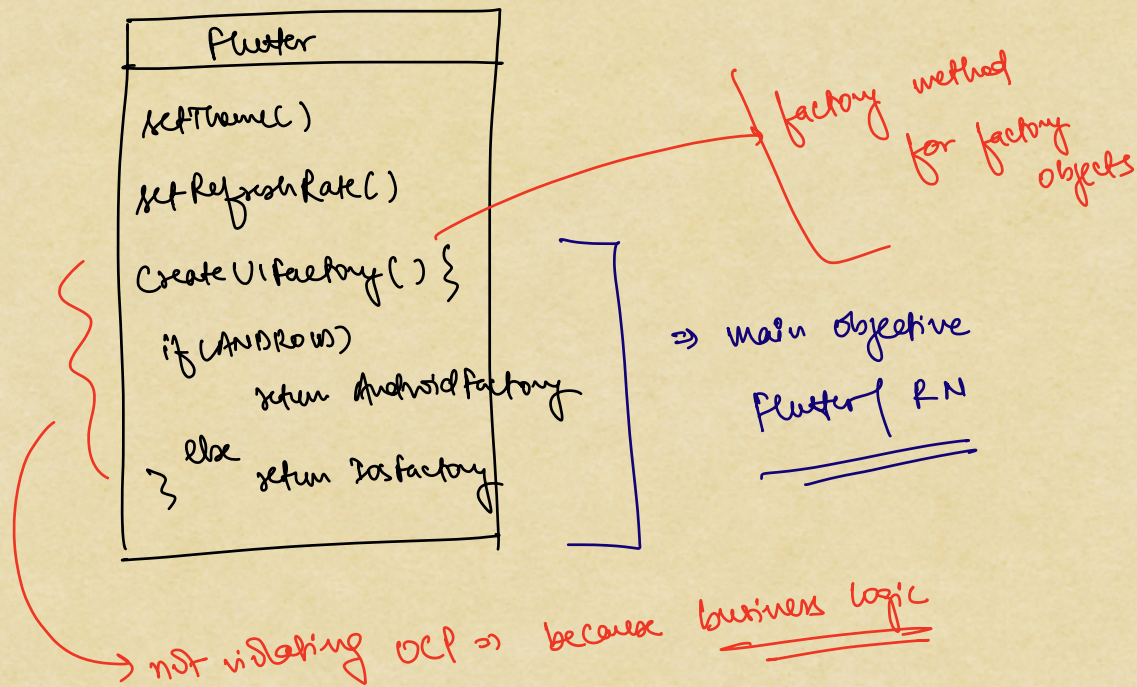 Flutter
setTheme()
setRefreshRate()
CreateUIFactory() {
if (ANDROID)
return AndroidFactory
else
return IosFactory
}
factory method
for factory
objects
⇒ main objective
Flutter / RN
not violating OCP ⇒ because business logic